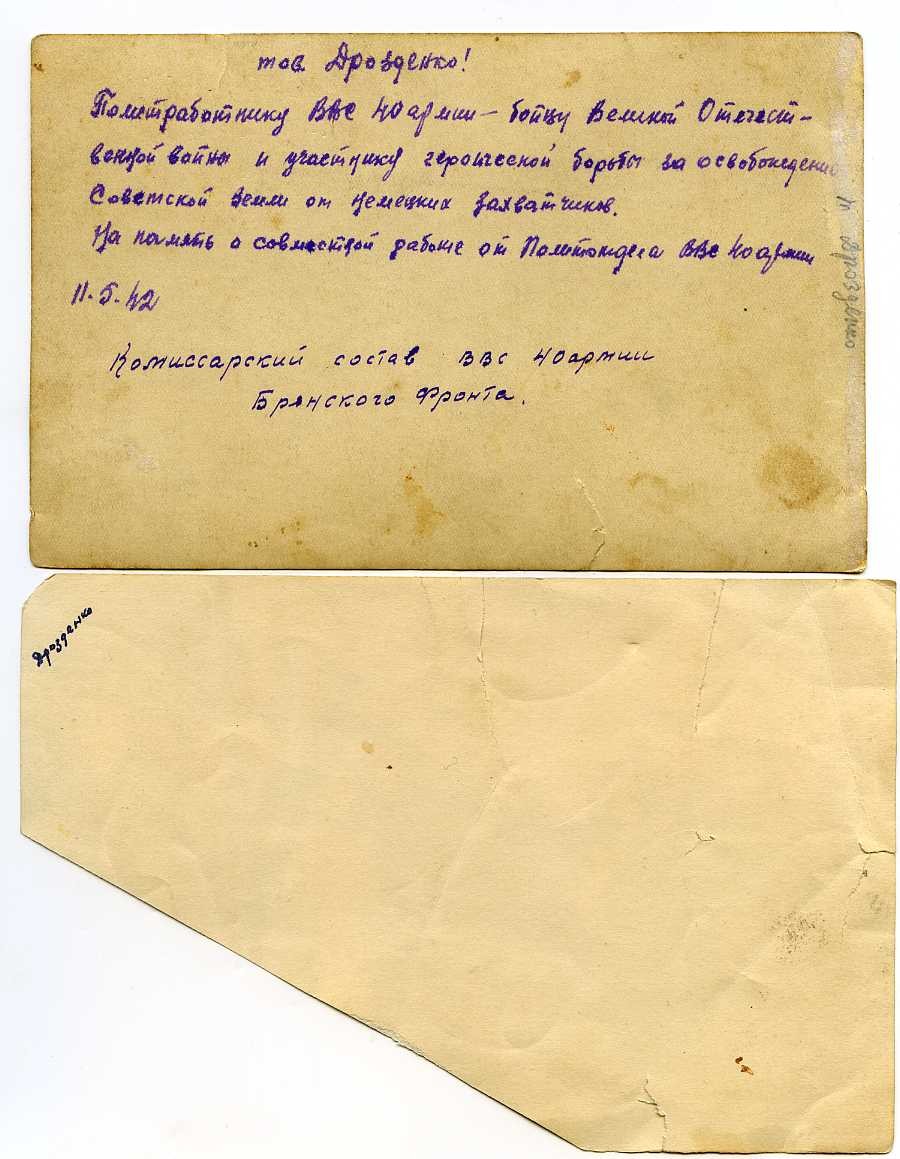 тов. Дрозденко!
Политработнику ВВС 40 армии — бойцу Великой Отечест-
венной войны и участнику героической борьбы за освобождение
Советской Земли от немецких захватчиков.
На память о совместной работе от Политотдела ВВС 40 армии
11.5.42
Комиссарский состав ВВС 40 армии
Брянского Фронта.
Дрозденко
Дрозденко